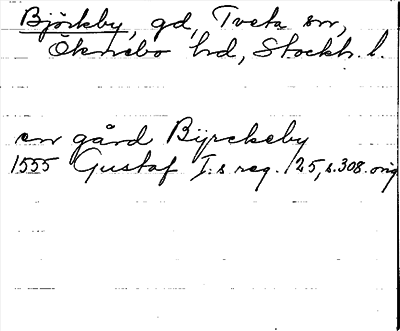 Björkby, gd, Tveta sn,
Öknebo hd, Stockh. l.
en gård Byrckeby
1555 Gustaf I:s reg. 125, s.308. orig